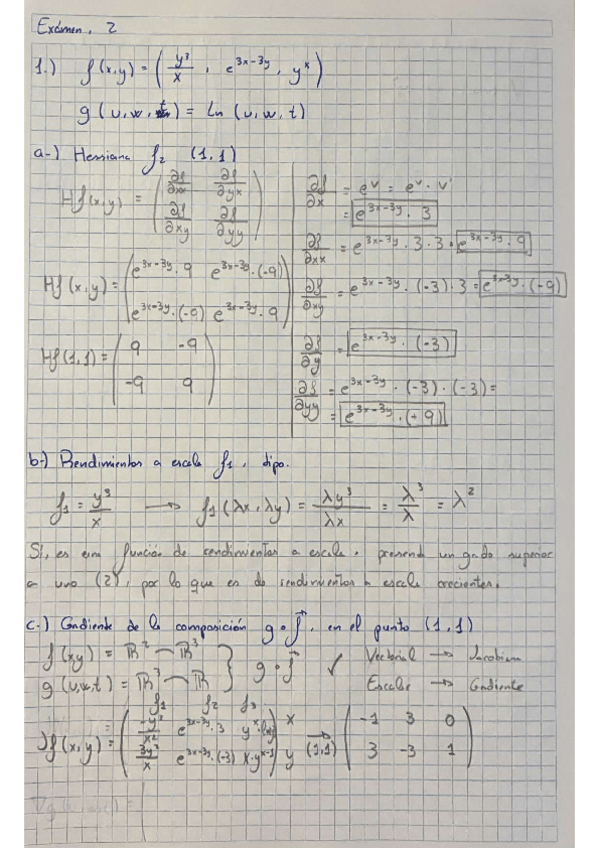 Exámen. 2
1.) f(x,y) = ( y³/x , e^{3x-3y} , y^x )
g(u,w,t) = Ln (u,w,t)
a-) Hessiana f₂ (1,1)
Hf(x,y) = ( ∂f/∂xx ∂f/∂yx
∂f/∂xy ∂f/∂yy )
Hf(x,y) = ( e^{3x-3y}·9 e^{3x-3y}·(-9)
e^{3x-3y}·(-9) e^{3x-3y}·9 )
Hf(1,1) = ( 9 -9
-9 9 )
∂f/∂x = e^v = e^v · v'
= e^{3x-3y} · 3
∂f/∂xx = e^{3x-3y} · 3 · 3 = e^{3x-3y} · 9
∂f/∂xy = e^{3x-3y} · (-3) · 3 = e^{3x-3y} · (-9)
∂f/∂y = e^{3x-3y} · (-3)
∂f/∂yy = e^{3x-3y} · (-3) · (-3) =
= e^{3x-3y} · (+9)
b-) Rendimientos a escala f₁, tipo.
f₁ = y³/x → f₁(λx, λy) = λy³/λx = λ³/λ = λ²
Sí, es una función de rendimientos a escala, presenta un grado superior
a uno (2), por lo que es de rendimientos a escala crecientes.
c-) Gradiente de la composición g∘f⃗, en el punto (1,1)
f(xy) = ℝ² → ℝ³
g(u,w,t) = ℝ³ → ℝ } g∘f⃗ ✓
Vectorial → Jacobiana
Escalar → Gradiente
f₁ f₂ f₃
Jf(x,y) = ( -y³/x² e^{3x-3y}·3 y^x·lny
3y²/x e^{3x-3y}·(-3) x·y^{x-1} ) x y →(1,1) ( -1 3 0
3 -3 1 )